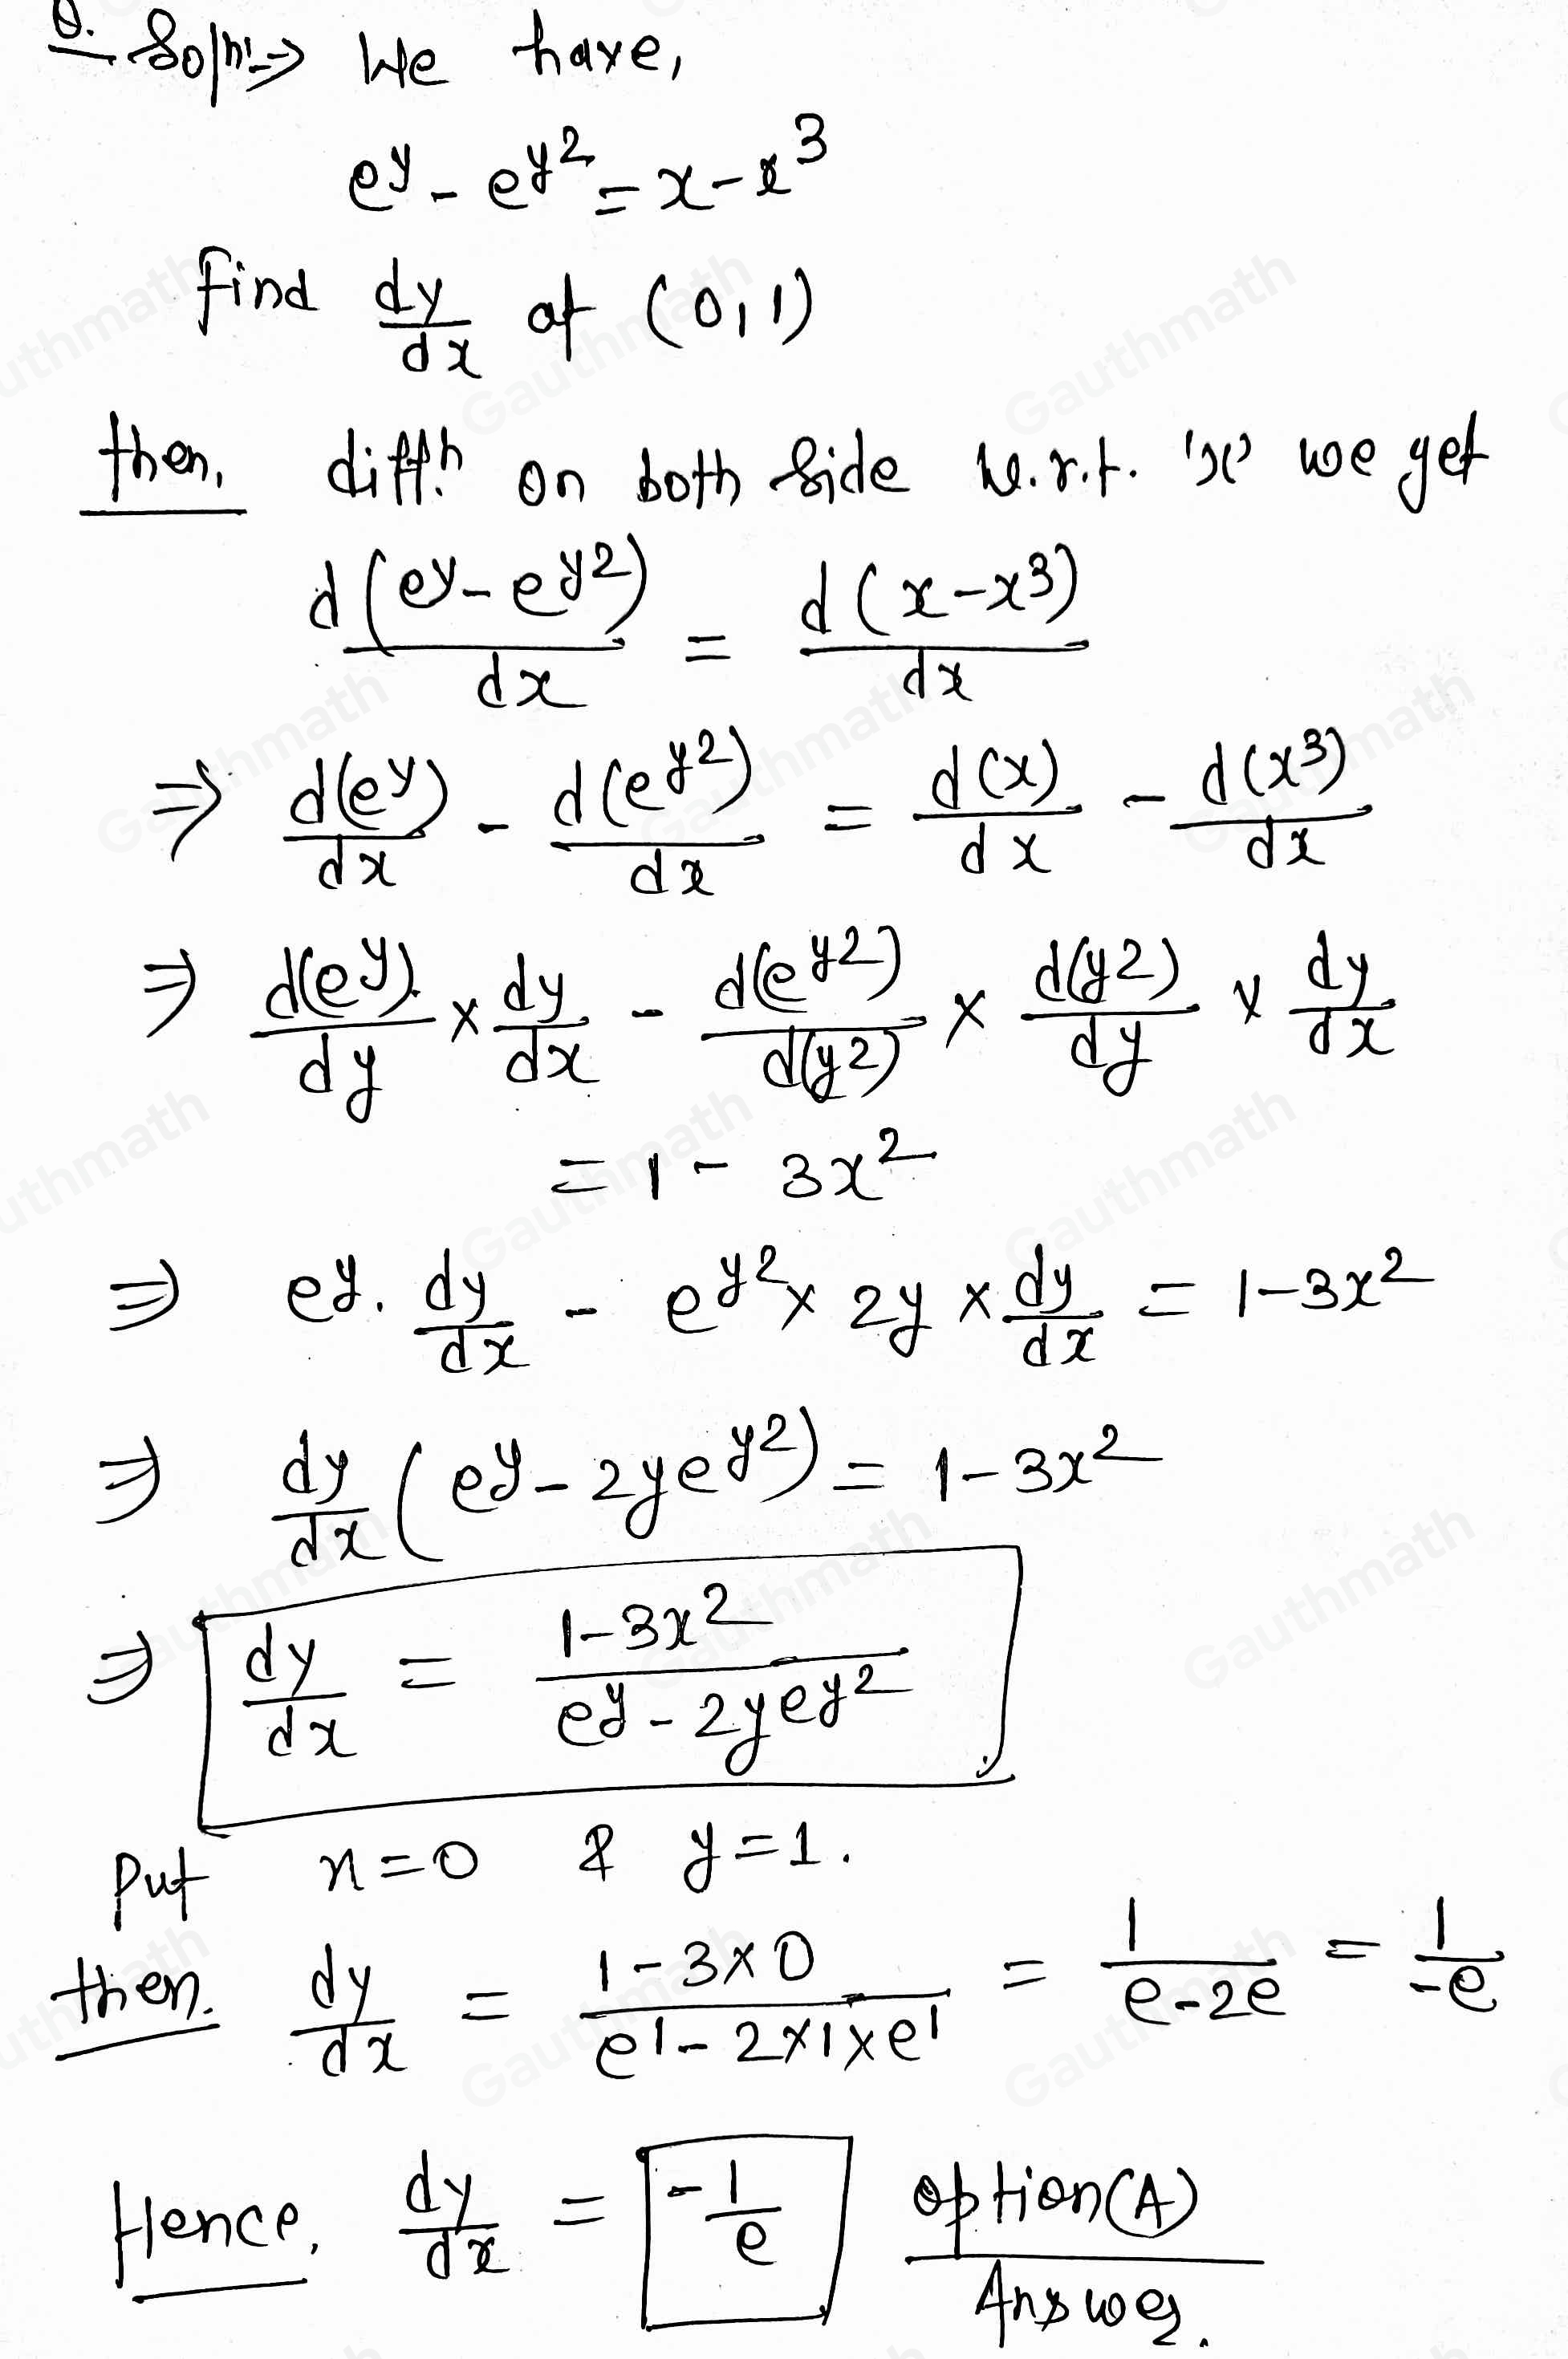 Q. Soln:-> We have,
e^y - e^y^2 = x - x^3
find dy/dx at (0,1)
then, diff.n on both side w.r.t. 'x' we get
d(e^y - e^y^2)/dx = d(x - x^3)/dx
=> d(e^y)/dx - d(e^y^2)/dx = d(x)/dx - d(x^3)/dx
=> d(e^y)/dy × dy/dx - d(e^y^2)/d(y^2) × d(y^2)/dy × dy/dx
= 1 - 3x^2
=> e^y. dy/dx - e^y^2 × 2y × dy/dx = 1 - 3x^2
=> dy/dx (e^y - 2ye^y^2) = 1 - 3x^2
=> dy/dx = 1 - 3x^2/e^y - 2ye^y^2
Put x = 0 & y = 1.
then. dy/dx = 1 - 3 × 0/e^1 - 2×1×e^1 = 1/e - 2e = 1/-e
Hence, dy/dx = -1/e option (A)
Answer.
Gauthmath